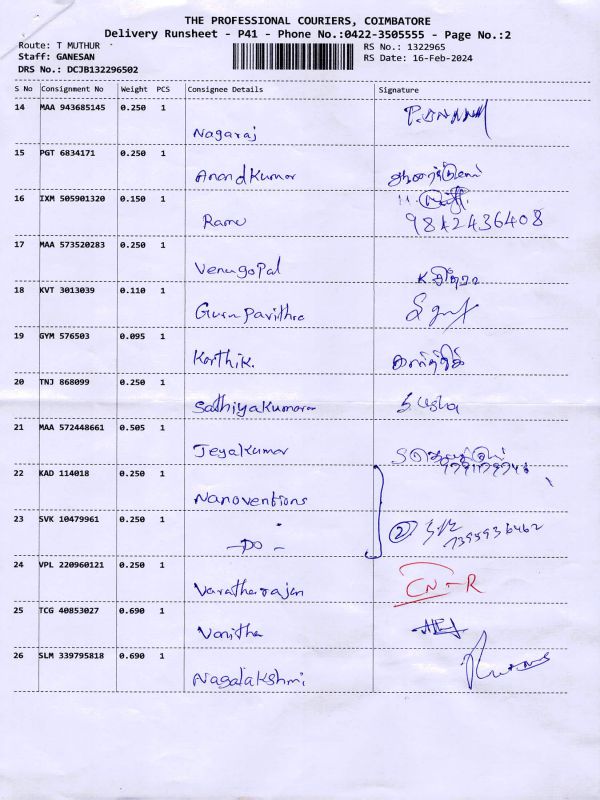 THE PROFESSIONAL COURIERS, COIMBATORE
Delivery Runsheet - P41 - Phone No.:0422-3505555 - Page No.:2
Route: T MUTHUR RS No.: 1322965
Staff: GANESAN RS Date: 16-Feb-2024
DRS No.: DCJB132296502
S No Consignment No Weight PCS Consignee Details Signature
14 MAA 943685145 0.250 1
Nagaraj
15 PGT 6834171 0.250 1
Anandkumar
16 IXM 505901320 0.150 1
Ramu 9842436408
17 MAA 573520283 0.250 1
Venugopal
18 KVT 3013039 0.110 1
Guru Pavithra
19 GYM 576503 0.095 1
Karthik. கார்த்திக்
20 TNJ 868099 0.250 1
Sathiyakumaran S. Usha
21 MAA 572448661 0.505 1
Jeyakumar
22 KAD 114018 0.250 1
Nanoventions
23 SVK 10479961 0.250 1
-DO- 2
24 VPL 220960121 0.250 1
Varatharajan CN-R
25 TCG 40853027 0.690 1
Vanitha
26 SLM 339795818 0.690 1
Nagalakshmi